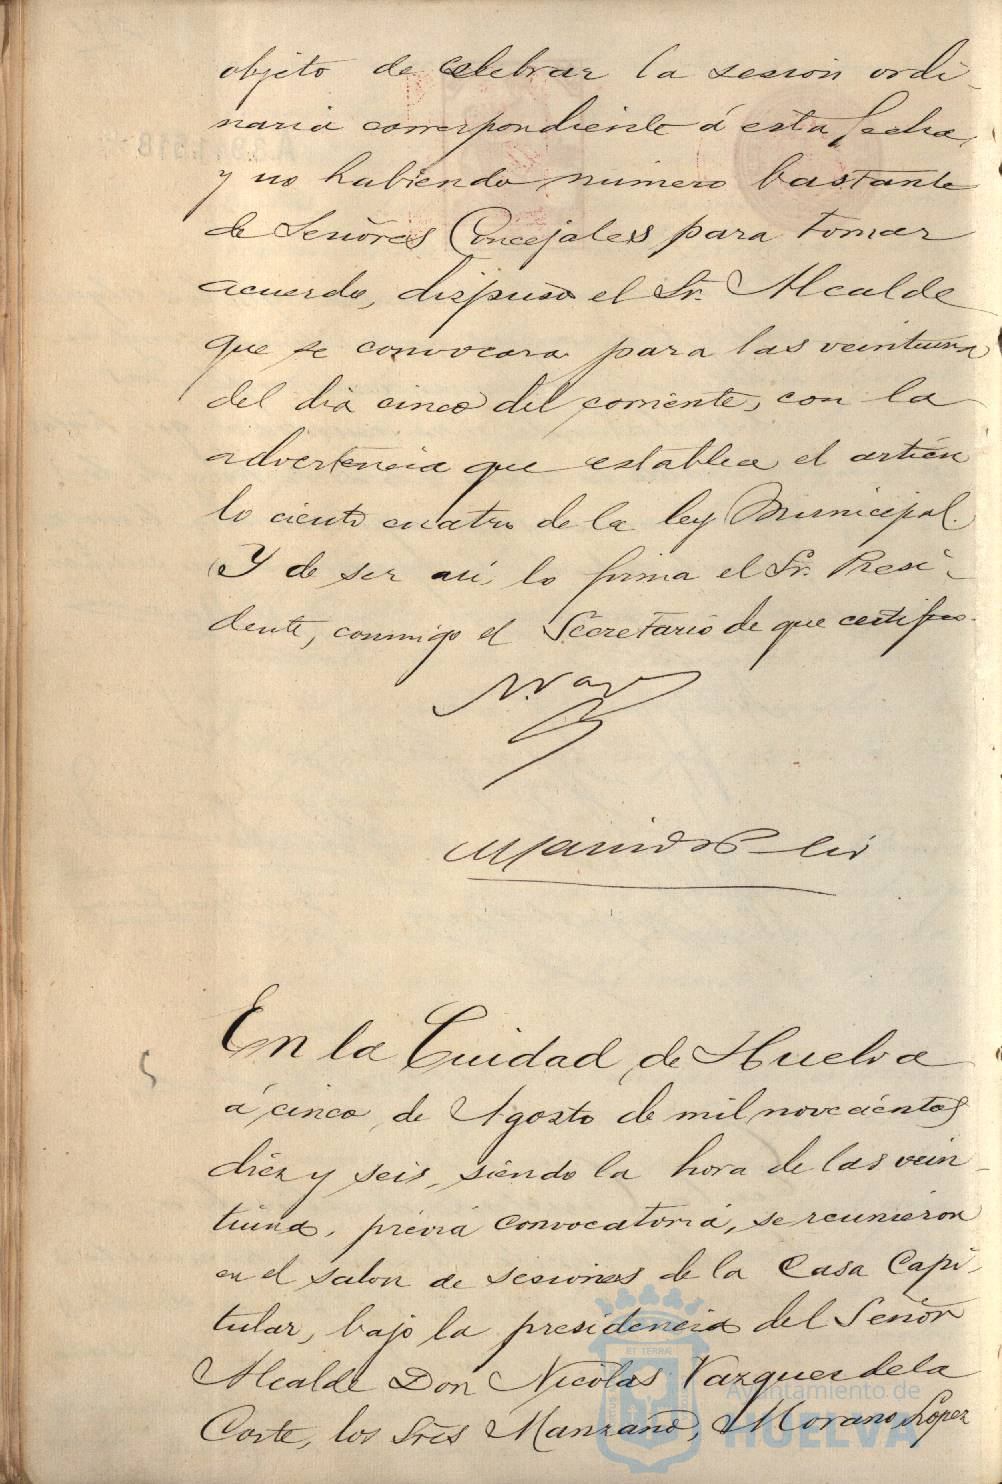 objeto de celebrar la sesion ordi-
naria correspondiente á esta fecha,
y no habiendo número bastante
de Señores Concejales para tomar
acuerdo, dispuso el Sr. Alcalde
que se convocara para las veintiuna
del dia cinco del corriente, con la
advertencia que establece el artícu
lo ciento cuatro de la ley Municipal.
Y de ser así, lo firma el Sr. Presi-
dente, conmigo el Secretario de que certifico.
En la Ciudad de Huelva
á cinco de Agosto de mil novecientos
diez y seis, siendo la hora de las vein-
tiuna, prévia convocatoria, se reunieron
en el salon de sesiones de la Casa Capi-
tular, bajo la presidencia del Señor
Alcalde Don Nicolas Vazquez de la
Corte, los Sres Manzano, Morano, Lopez
Ayuntamiento de
HUELVA